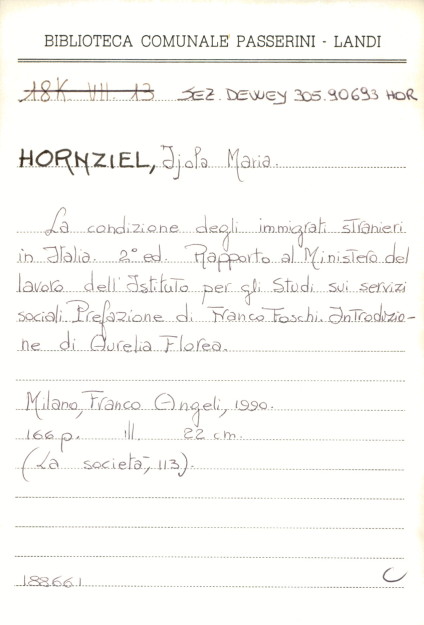 BIBLIOTECA COMUNALE PASSERINI - LANDI
18K VII. 13 SEZ. DEWEY 305.90693 HOR
HORNZIEL, Ijola Maria.
La condizione degli immigrati stranieri
in Italia. 2ª ed. Rapporto al Ministero del
lavoro dell'Istituto per gli Studi sui servizi
sociali. Prefazione di Franco Foschi. Introdizio-
ne di Aurelia Florea.
Milano, Franco Angeli, 1990.
166 p. ill. 22 cm.
(La società, 113).
188661
C